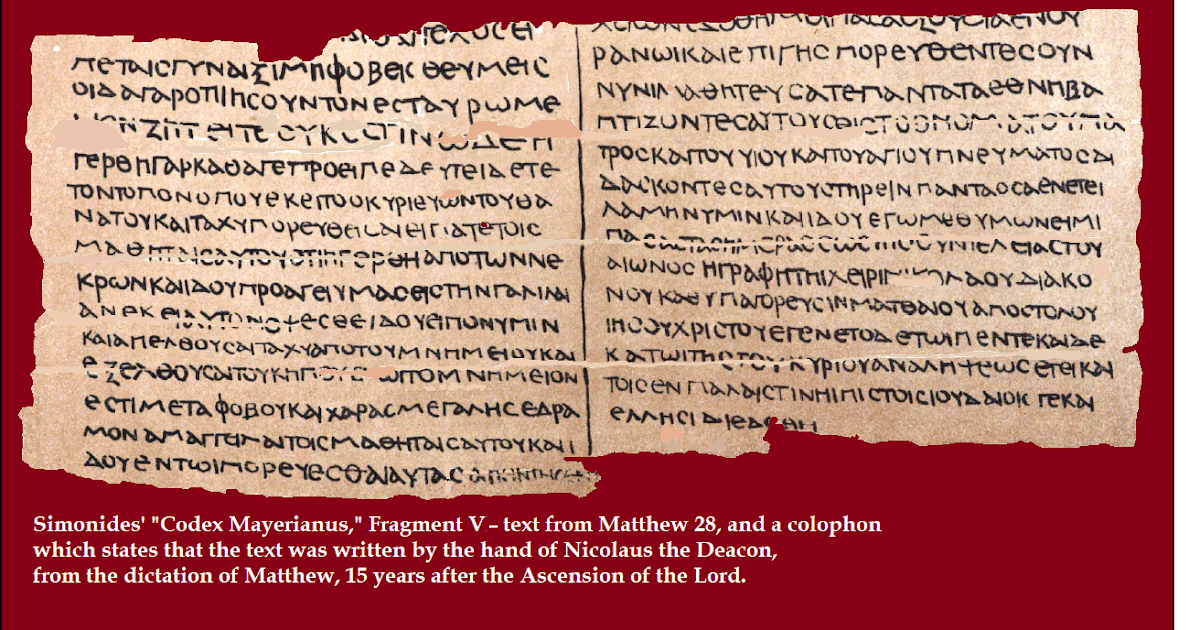 ΓΕΛΟCΕΙ
ΠΕΤΑΙCΓΥΝΑΙΞΙΜΗΦΟΒΕΙCΘΕΥΜΕΙC
ΟΙΔΑΓΑΡΟΤΙΙΗCΟΥΝΤΟΝΕCΤΑΥΡΩΜΕ
ΝΟΝΖΗΤΕΙΤΕΟΥΚΕCΤΙΝΩΔΕΗ
ΓΕΡΘΗΓΑΡΚΑΘΑΠΕΡΠΡΟΕΙΠΕΔΕΥΤΕΙΔΕΤΕ
ΤΟΝΤΟΠΟΝΟΠΟΥΕΚΕΙΤΟΟΚΥΡΙΕΥΩΝΤΟΥΘΑ
ΝΑΤΟΥΚΑΙΤΑΧΥΠΟΡΕΥΘΕΙCΑΙΕΙΠΑΤΕΤΟΙC
ΜΑΘΗΤΑΙCΑΥΤΟΥΟΤΙΗΓΕΡΘΗΑΠΟΤΩΝΝΕ
ΚΡΩΝΚΑΙΔΟΥΠΡΟΑΓΕΙΥΜΑCΕΙCΤΗΝΓΑΛΙΛΑΙ
ΑΝΕΚΕΙΑΥΤΟΝΟΨΕCΘΕΙΔΟΥΕΙΠΟΝΥΜΙΝ
ΚΑΙΑΠΕΛΘΟΥCΑΙΤΑΧΥΑΠΟΤΟΥΜΝΗΜΕΙΟΥΚΑΙ
ΕΞΕΛΘΟΥCΑΙΤΟΥΚΗΠΟΥΕ ΩΤΟΜΝΗΜΕΙΟΝ
ΕCΤΙΜΕΤΑΦΟΒΟΥΚΑΙΧΑΡΑCΜΕΓΑΛΗCΕΔΡΑ
ΜΟΝΑΠΑΓΓΕΙΛΑΙΤΟΙCΜΑΘΗΤΑΙCΑΥΤΟΥΚΑΙΙ
ΔΟΥΕΝΤΩΙΠΟΡΕΥΕCΘΑΙΑΥΤΑCΑΠΗΝΤΗ
ΕΔΟΘΗΜΟΙΠΑCΑΕΞΟΥCΙΑΕΝΟΥ
ΡΑΝΩΙΚΑΙΕΠΙΓΗCΠΟΡΕΥΘΕΝΤΕCΟΥΝ
ΝΥΝΜΑΘΗΤΕΥCΑΤΕΠΑΝΤΑΤΑΕΘΝΗΒΑ
ΠΤΙΖΟΝΤΕCΑΥΤΟΥCΕΙCΤΟΟΝΟΜΑΤΟΥΠΑ
ΤΡΟCΚΑΙΤΟΥΥΙΟΥΚΑΙΤΟΥΑΓΙΟΥΠΝΕΥΜΑΤΟCΔΙ
ΔΑCΚΟΝΤΕCΑΥΤΟΥCΤΗΡΕΙΝΠΑΝΤΑΟCΑΕΝΕΤΕΙ
ΛΑΜΗΝΥΜΙΝΚΑΙΙΔΟΥΕΓΩΜΕΘΥΜΩΝΕΙΜΙ
ΠΑCΑCΤΑCΗΜΕΡΑCΕΩCΤΗCCΥΝΤΕΛΕΙΑCΤΟΥ
ΑΙΩΝΟCΗΓΡΑΦΗΤΗΙΧΕΙΡΙΝ ΛΑΟΥΔΙΑΚΟ
ΝΟΥΚΑΘΥΠΑΓΟΡΕΥCΙΝΜΑΤΘΑΙΟΥΑΠΟCΤΟΛΟΥ
ΙΗCΟΥΧΡΙCΤΟΥΕΓΕΝΕΤΟΔΕΤΩΙΠΕΝΤΕΚΑΙΔΕ
ΚΑΤΩΙΤΗCΤΟΥΚΥΡΙΟΥΑΝΑΛΗΨΕΩCΕΤΕΙΚΑΙ
ΤΟΙCΕΝΠΑΛΑΙCΤΙΝΗΙΠΙCΤΟΙCΙΟΥΔΑΙΟΙCΤΕΚΑΙ
ΕΛΛΗCΙΔΙΕΔΟΘΗ
Simonides' "Codex Mayerianus," Fragment V – text from Matthew 28, and a colophon
which states that the text was written by the hand of Nicolaus the Deacon,
from the dictation of Matthew, 15 years after the Ascension of the Lord.